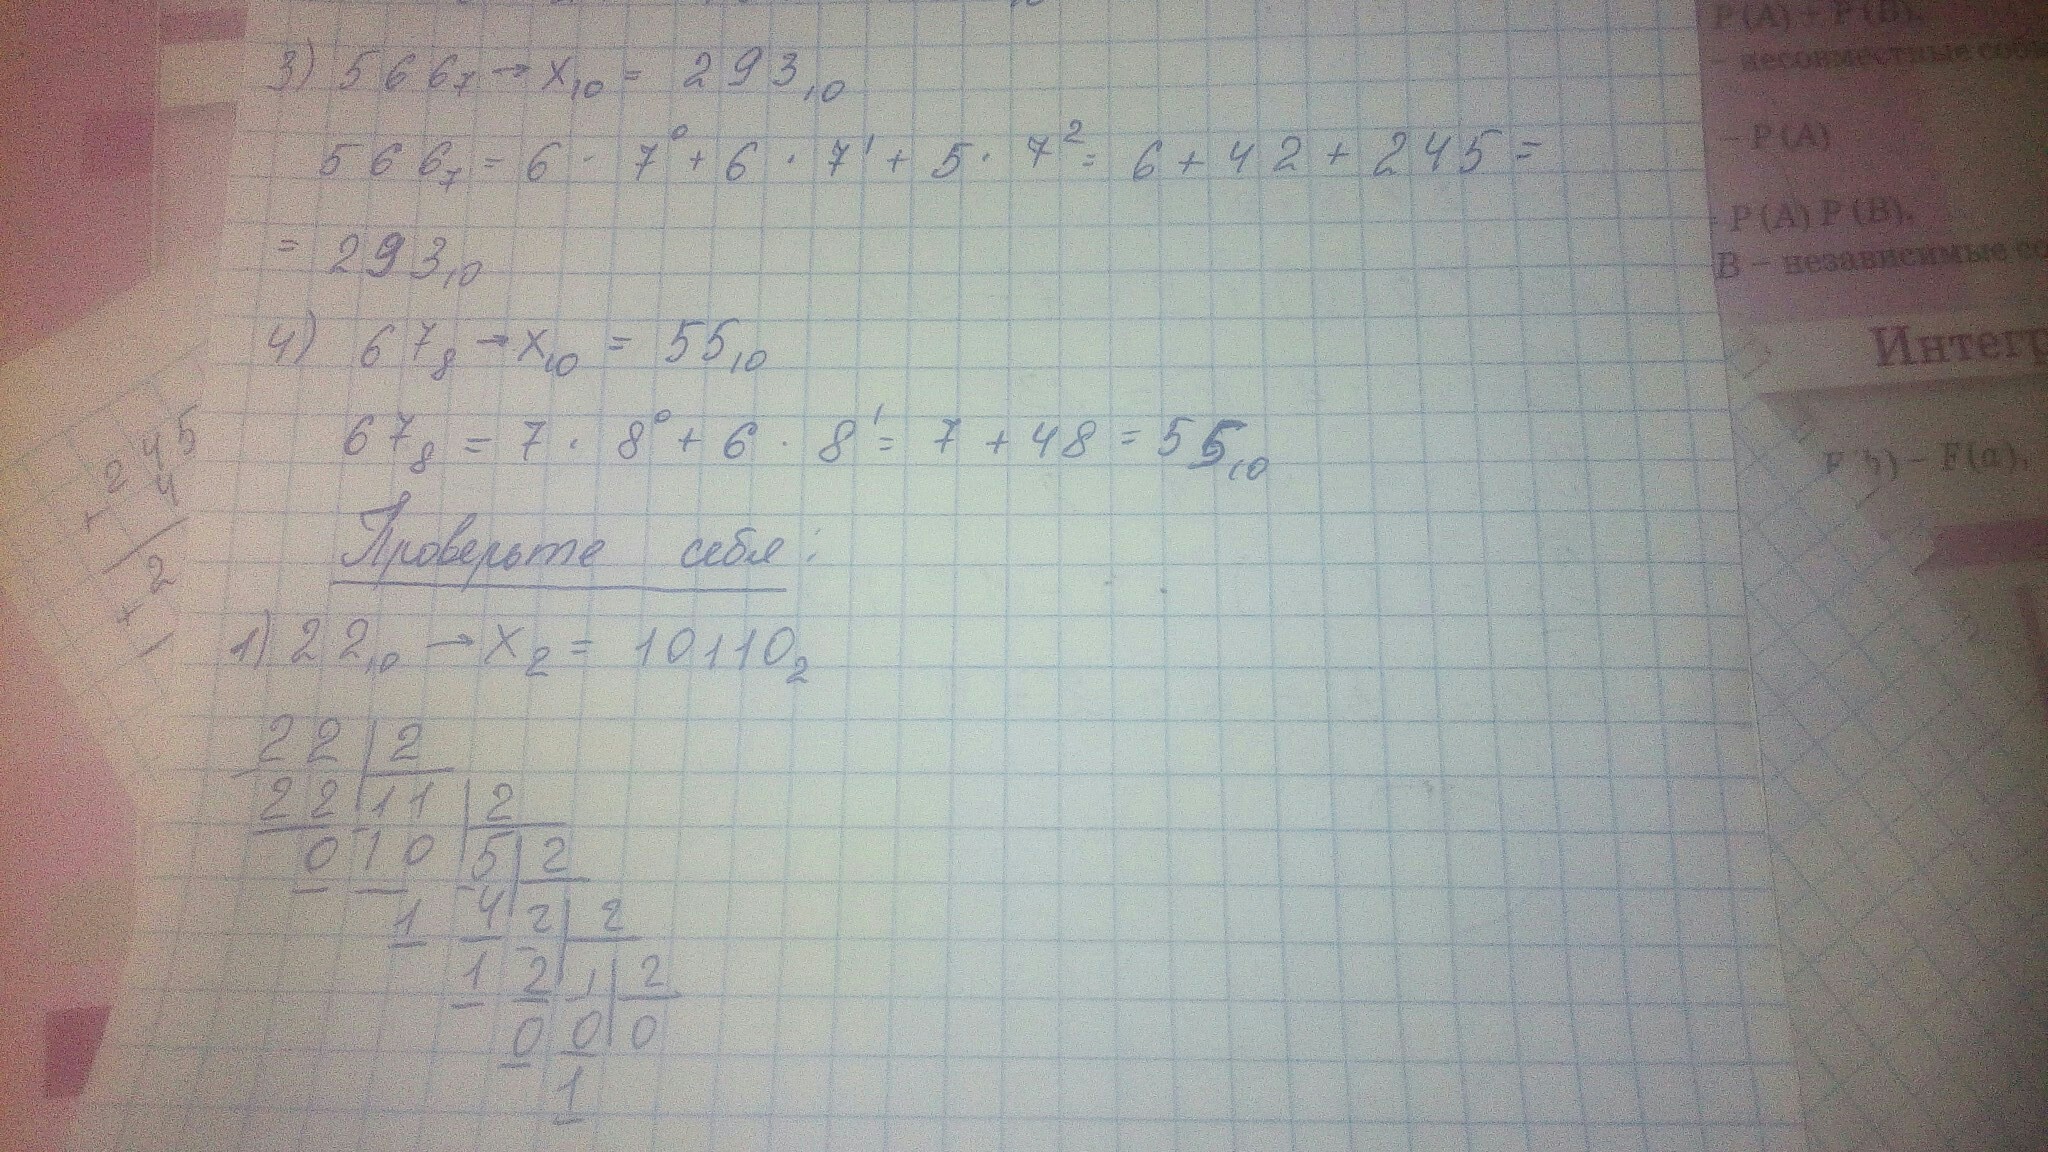 3) 566₇ → x₁₀ = 293₁₀
566₇ = 6 · 7⁰ + 6 · 7¹ + 5 · 7² = 6 + 42 + 245 =
= 293₁₀
4) 67₈ → x₁₀ = 55₁₀
67₈ = 7 · 8⁰ + 6 · 8¹ = 7 + 48 = 55₁₀
Проверьте себя:
1) 22₁₀ → x₂ = 10110₂
22 | 2
22 | 11 | 2
0 10 | 5 | 2
1 4 | 2 | 2
1 2 | 1 | 2
0 0 | 0
1
245
+ 4
2
+
P(A) + P(B).
– несовместные соб
– P(A)
P(A) P(B).
B – независимые со
Интегр
– F(a),